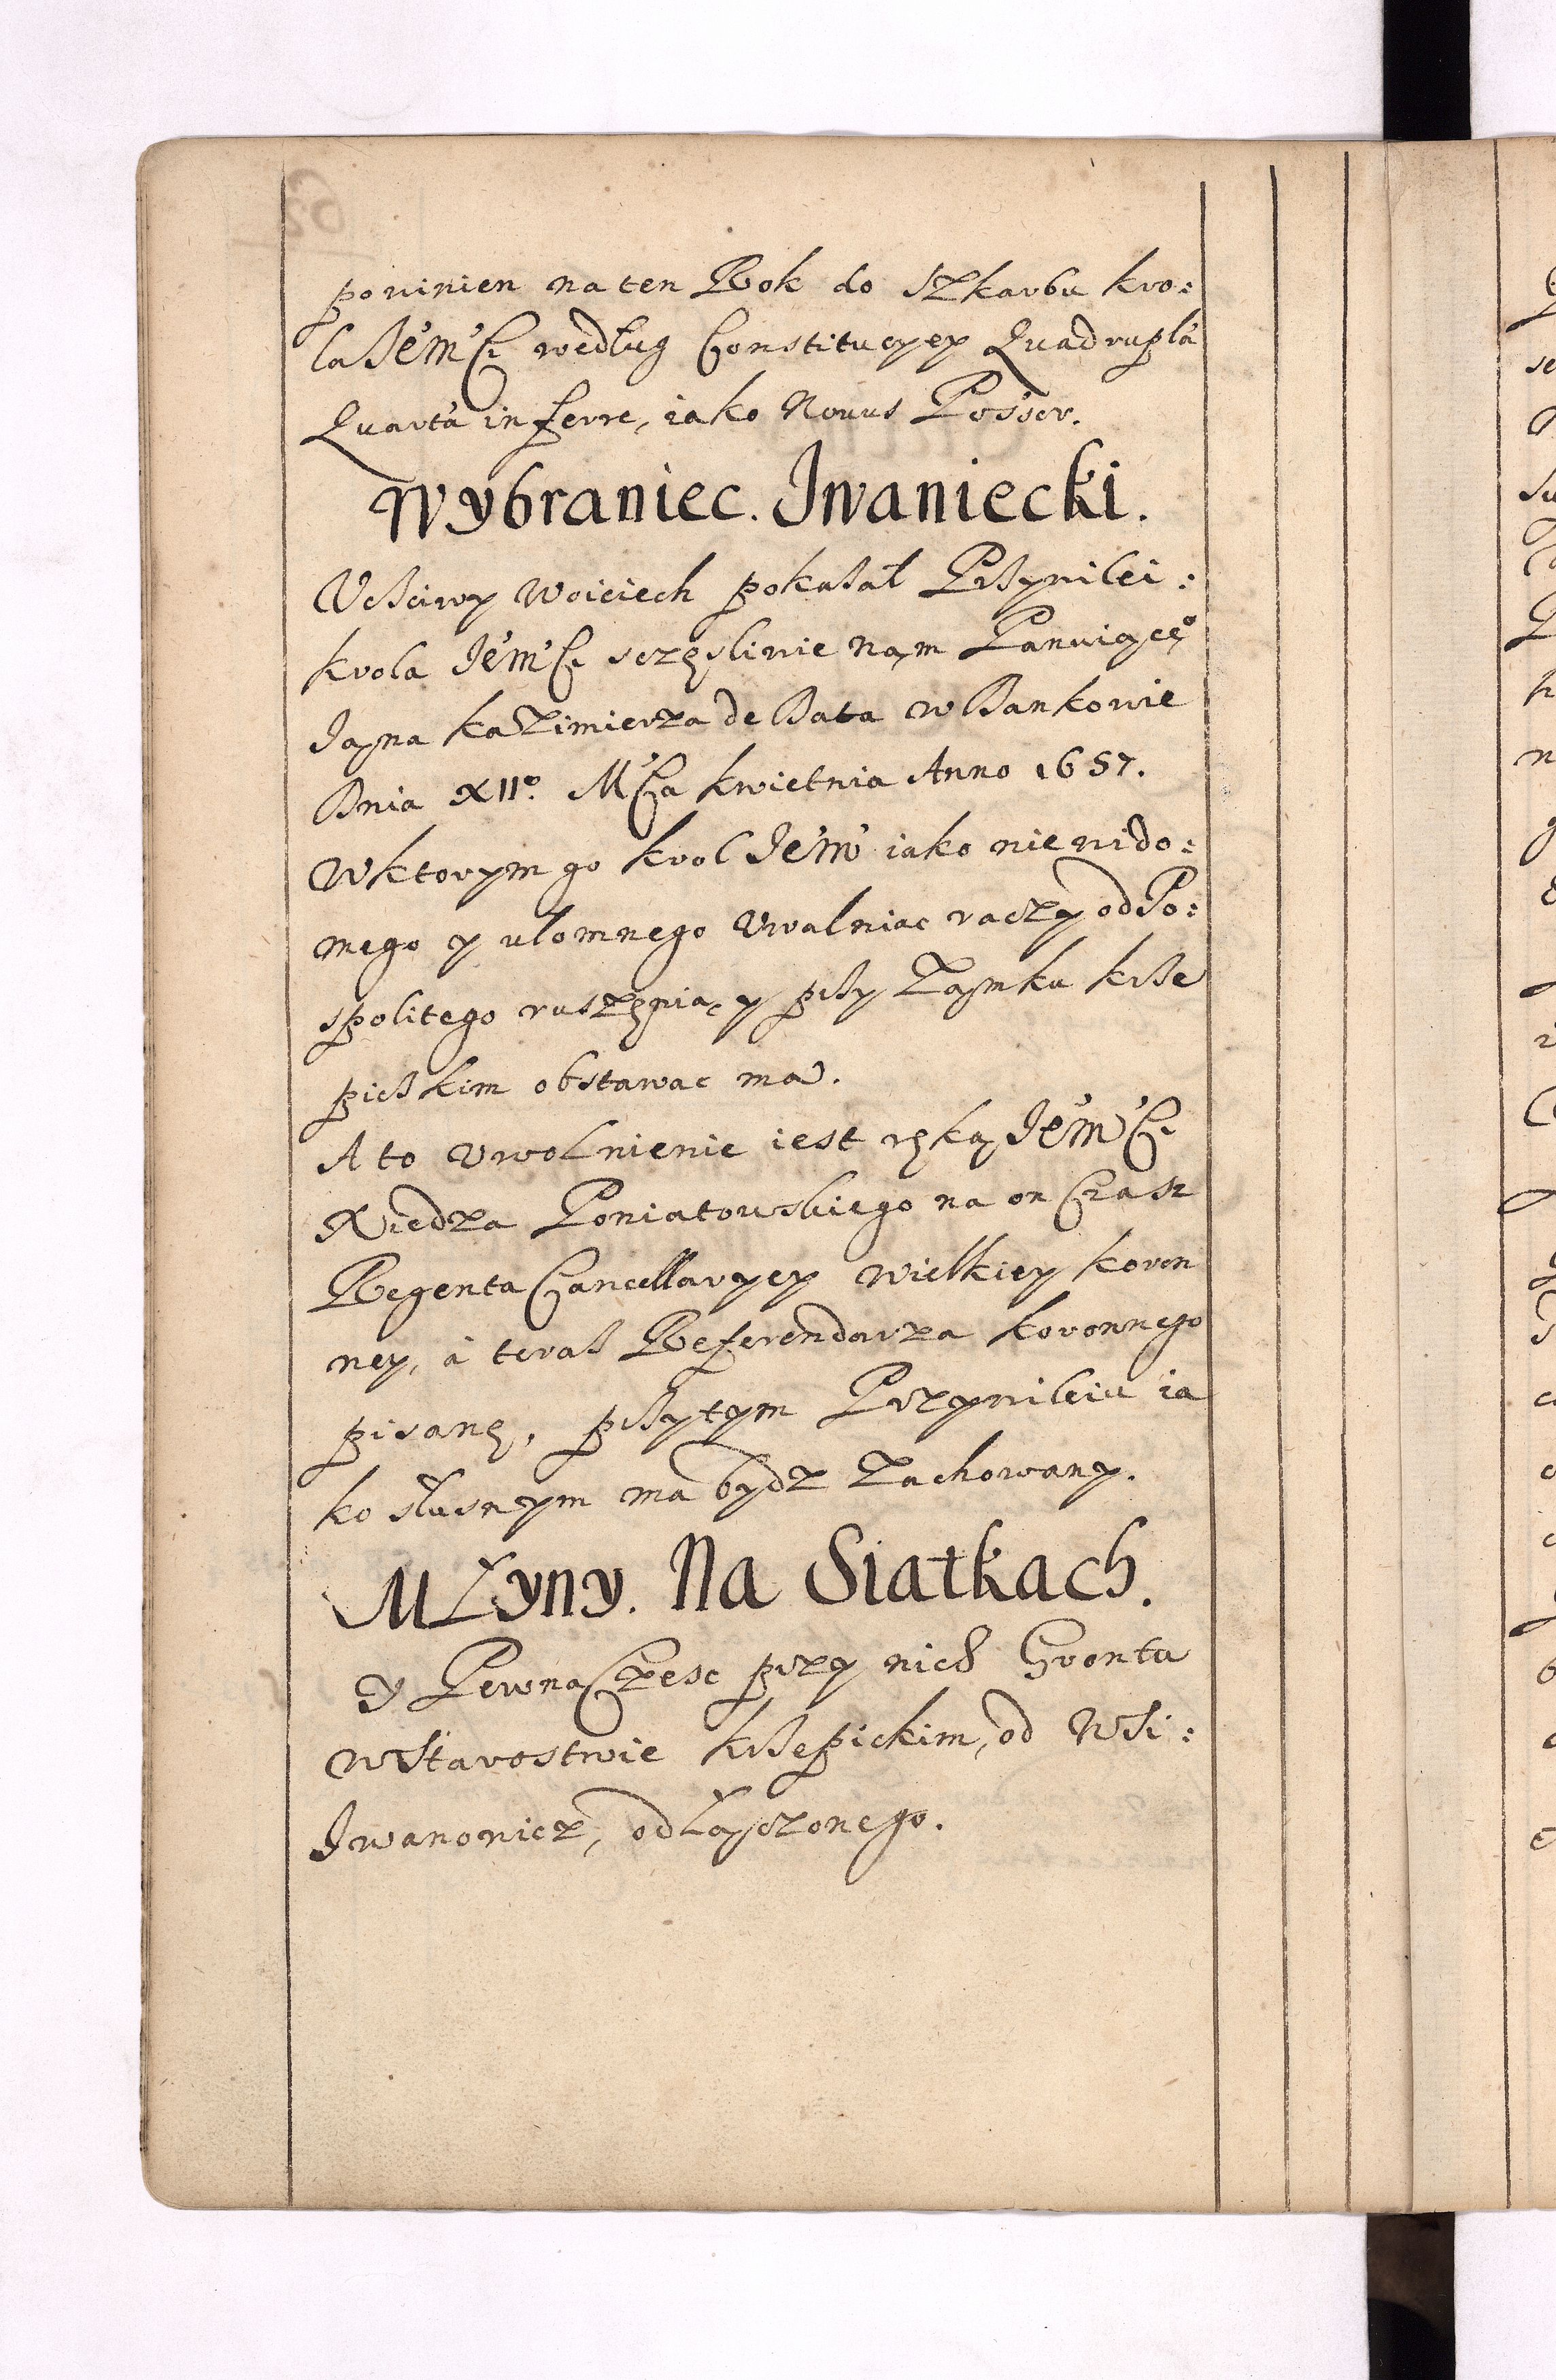 powinien na ten Rok do Szkarbu kro:
la Jem͠Cꝭ według Constitucyey Quadruplá
Quartá inferre, iako Nouus Possor.
Wybraniec. Iwaniecki.
Vcżciwy Woiciech pokazał Przywilei:
krola Jem͠Cꝭ sczęsliwie nąm Panuiące͠º
Jąna kaZimierza de Data w Dankowie
Dnia XIIº. M͠Ca kwietnia Anno 1657.
Wktorym go krol Jem͠ iako niewido:
mego y ułomnego Vwalniac raczy od Po:
spolitego ruszęnia, y przy Ząmku krze
pickim obstawac ma.
A to Vwolnienie iest ręką Jem͠Cꝭ
Xiedza Poniatowskiego na on Czasz
Regenta Cancellaryey wielkiey koron
ney, á teraz Referendarza koronnego
pisanę, przytym Przywileiu ia
ko słusnym má bydz Zachowany.
MŁyny. Na Siatkach.
y Pewna Czesc przy nich Gruntu
wStarostwie krzepickim, od Wsi:
Iwanowicz, odłączonego.